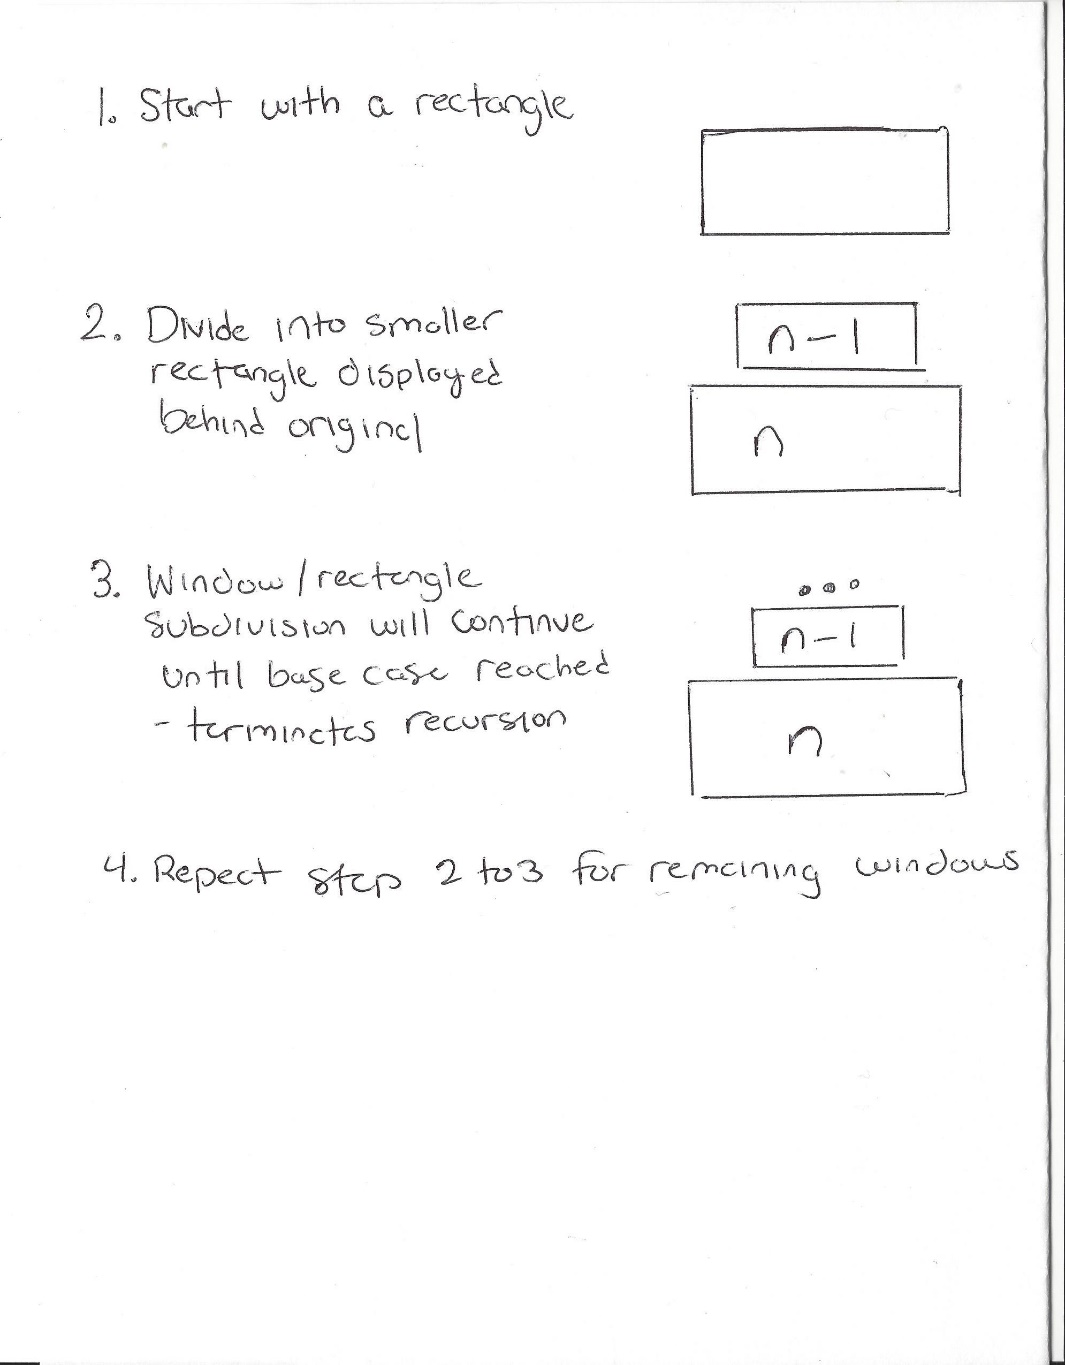 1. Start with a rectangle
2. Divide into smaller
rectangle displayed
behind original
n-1
n
3. Window/rectangle
subdivision will continue
until base case reached
- terminates recursion
n-1
n
4. Repeat step 2 to 3 for remaining windows